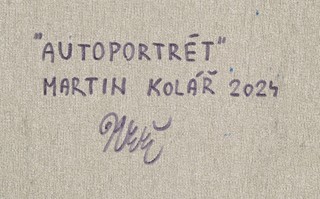 "AUTOPORTRÉT"
MARTIN KOLÁŘ 2024